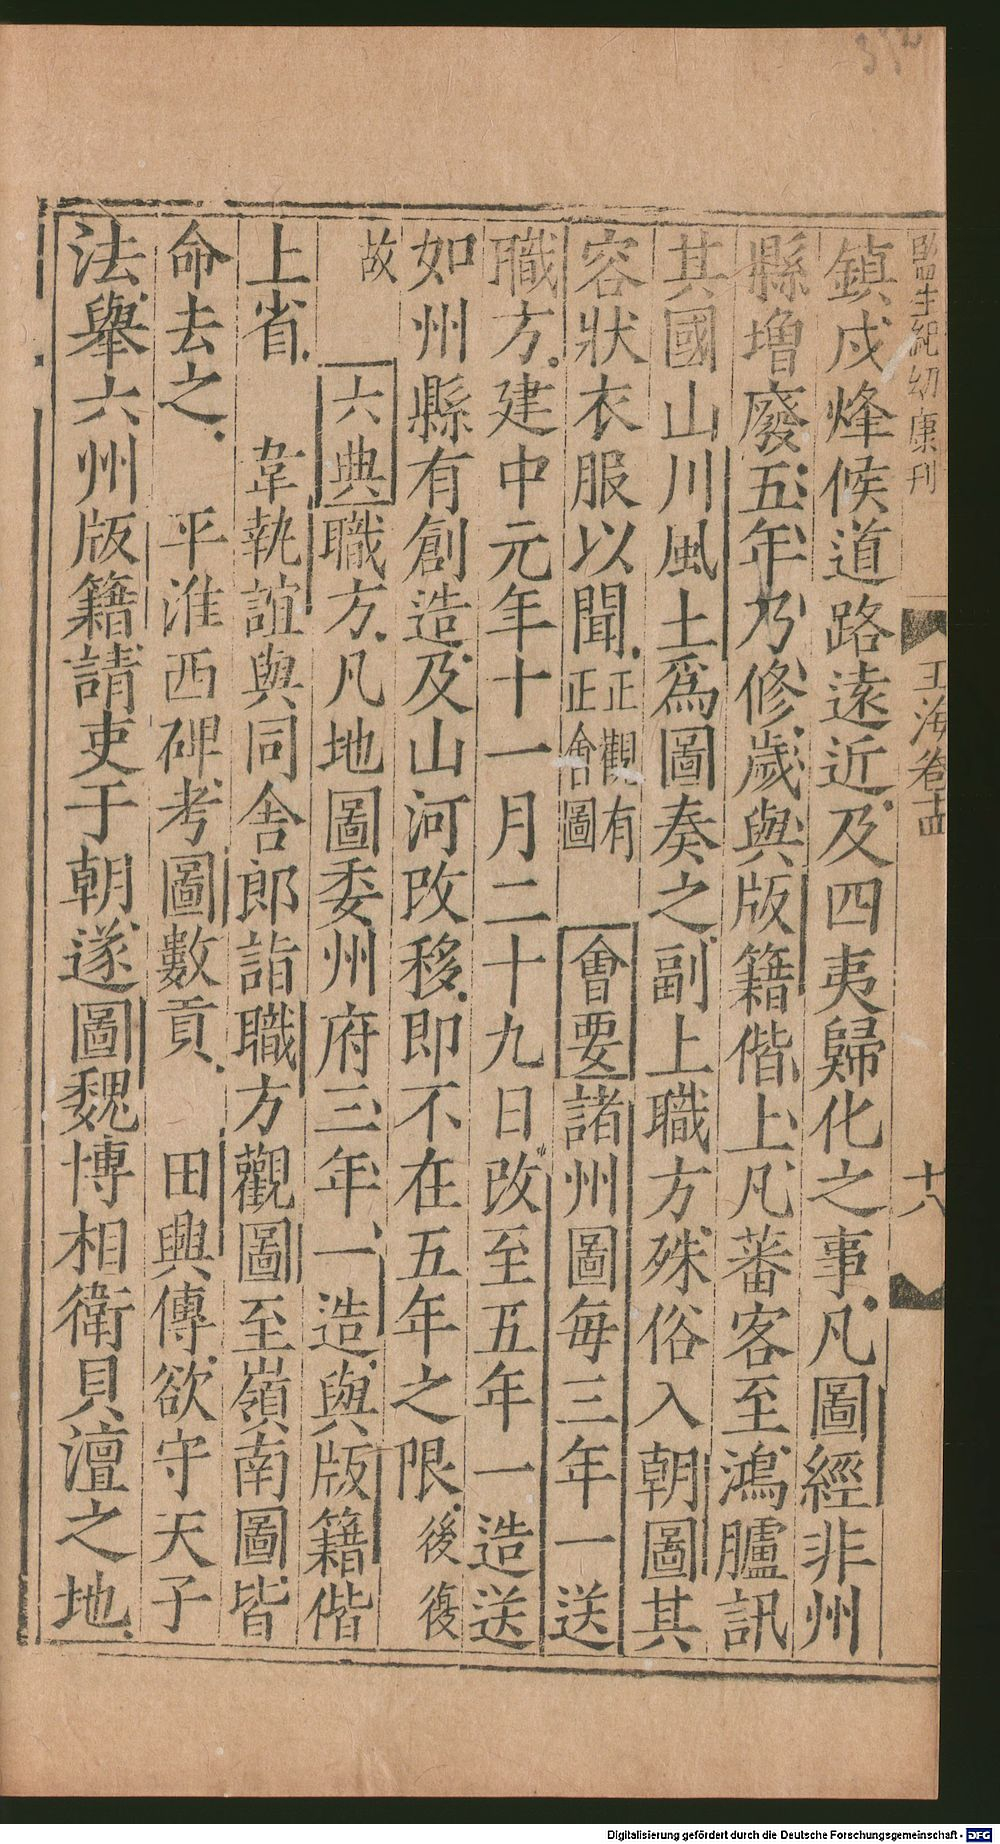 監生紀幼康刊
玉海卷十四
十八
鎮戍烽候道路遠近及四夷歸化之事凡圖經非州
縣增廢五年乃修歲與版籍偕上凡蕃客至鴻臚訊
其國山川風土爲圖奏之副上職方殊俗入朝圖其
容狀衣服以聞正觀有正會圖 會要諸州圖每三年一送
職方建中元年十一月二十九日改至五年一造送
如州縣有創造及山河改移即不在五年之限後復
故 六典職方凡地圖委州府三年一造與版籍偕
上省 韋執誼與同舍郎詣職方觀圖至嶺南圖皆
命去之 平淮西碑考圖數貢 田興傳欲守天子
法舉六州版籍請吏于朝遂圖魏博相衛貝澶之地
Digitalisierung gefördert durch die Deutsche Forschungsgemeinschaft - DFG